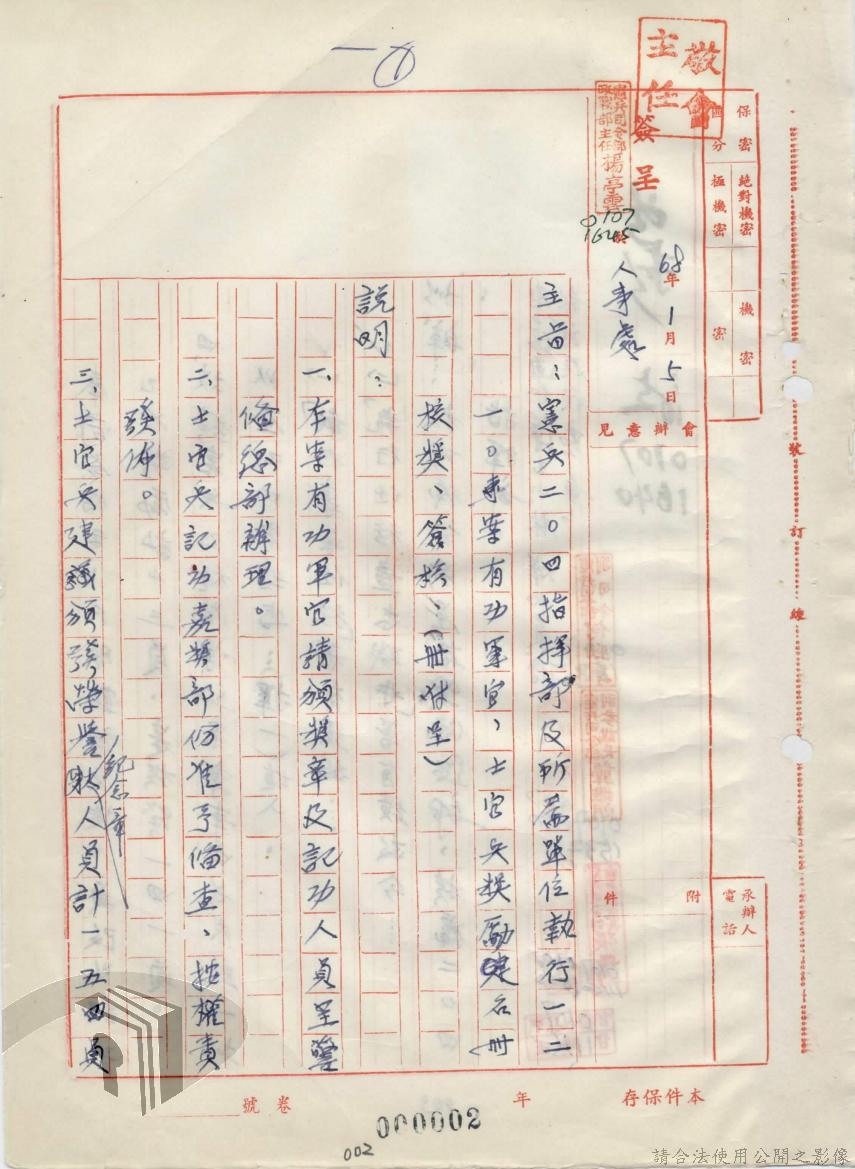 一①
敬會
主任
保密區分
絕對機密
極機密
機密
密
簽呈
憲兵司令部
政戰部主任
楊亭雲
0107
1645
68年1月5日
於人事處
會辦意見
附件
承辦人
電話
裝訂線
主旨：憲兵二〇四指揮部及所屬單位執行一二
一〇專案有功軍官、士官兵獎勵建名冊
核獎、簽核、（冊附呈）
說明：
一、本案有功軍官請頒獎章及記功人員呈警
備總部辦理。
二、士官兵記功嘉獎部份准予備查、按權責
發佈。
三、士官兵建議頒發榮譽狀紀念章人員計一五四員
本件保存　年　卷　號
000002
002
請合法使用公開之影像